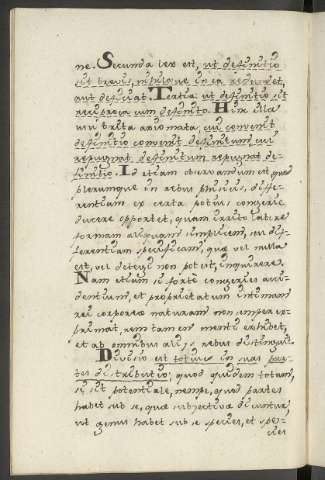 ne. Secunda lex est, ut definitio
sit brevis, nihilque in ea redundet,
aut deficiat. Tertia: ut definitio sit
reciproca cum definito. Hinc illa
vulgata axiomata: cui convenit
definitio convenit definitum; cui
repugnat definitum repugnat de-
finitio. Id etiam observandum est quod
plerumque in rebus physicis, diffe-
rentiam ex certa potius congerie
ducere oportet, quam irrito labore
formam aliquam simplicem, seu dif-
ferentiam specificam, quae vel nulla
est, vel detegi non potest, inquirere.
Nam etiam si forte congeries acci-
dentium, et proprietatum intimam
rei corporea naturam non semper ex-
primat, rem tamen menti exhibet,
et ab omnibus aliis rebus distinguit.
Divisio est totius in suas par-
tes distributio; quod quidem totum,
si sit potentiale, nempe, quod partes
habet sub se, quae subjectiva dicuntur,
ut genus habet sub se species, et spe-
cies